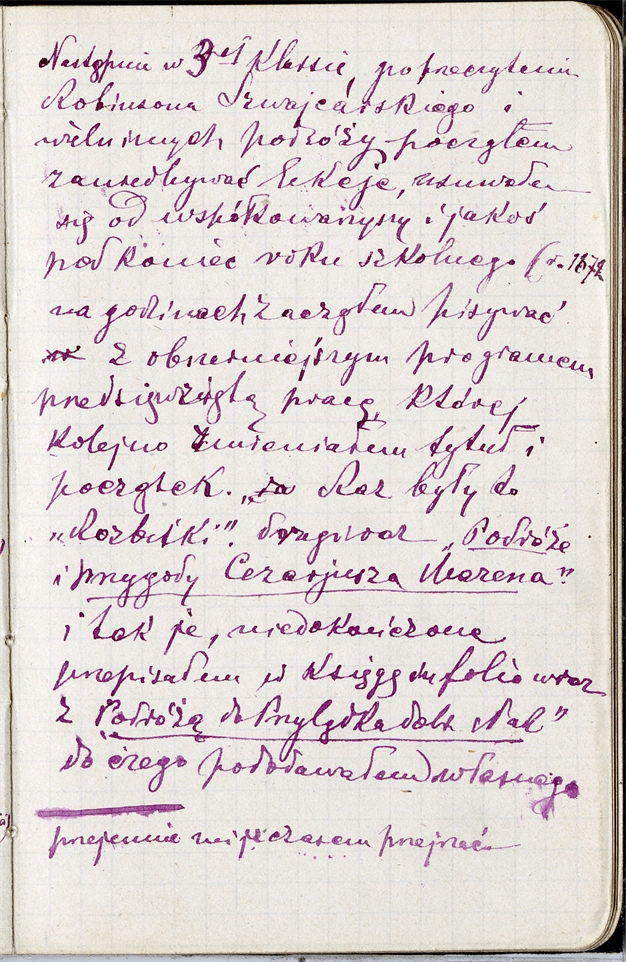 Następnie w 3ej Klassie, po przeczytaniu
Robinsona Szwajcarskiego i
wielu innych podróży począłem
zaniedbywać lekcje, usuwałem
się od współkowarzyszy i jakoś
pod koniec roku szkolnego (r. 1872
na godzinach zacząłem pisywać
z obszerniejszym programem
przedsięwziętą pracę, której
kolejno zmieniałem tytuł i
początek. „ Raz były to
„Rozbitki". drugi raz „Podróże
i przygody Cezarjusza Marena"
i tak je, niedokończone
przepisałem w księgę in folio wraz
z Podróżą do Przylądka dobr. Nad"
do czego pododawałem własnego